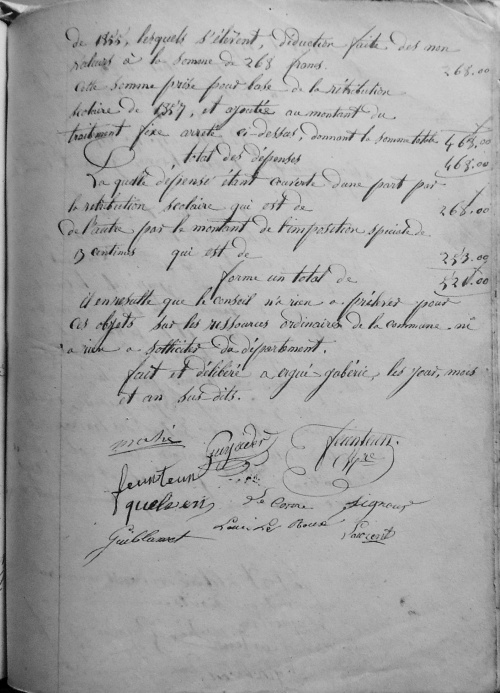 de 1855, lesquels s'élèvent, déduction faite des non
valeurs à la somme de 268 francs. 268.00
Cette somme prise pour base de la rétribution
scolaire de 1857, et ajoutée au montant du
traitement fixe arrêté ci-dessus, donnant la somme totale 468.00
total des dépenses 468.00
La quelle dépense étant couverte d'une part par
la rétribution scolaire qui est de 268.00
de l'autre par le montant de l'imposition spéciale de
3 centimes qui est de 253.00
forme un total de 521.00
il en resulte que le conseil n'a rien a préléver pour
ces objets sur les ressources ordinaires de la commune ni
a rien a solliciter du département.
fait et délibéré a ergué gabéric, les jour, mois
et an sus dits.
mahé Guyader feunteun
feunteun
quelven Le Corre Signour
Guillamet Louis Le Roux Laurent